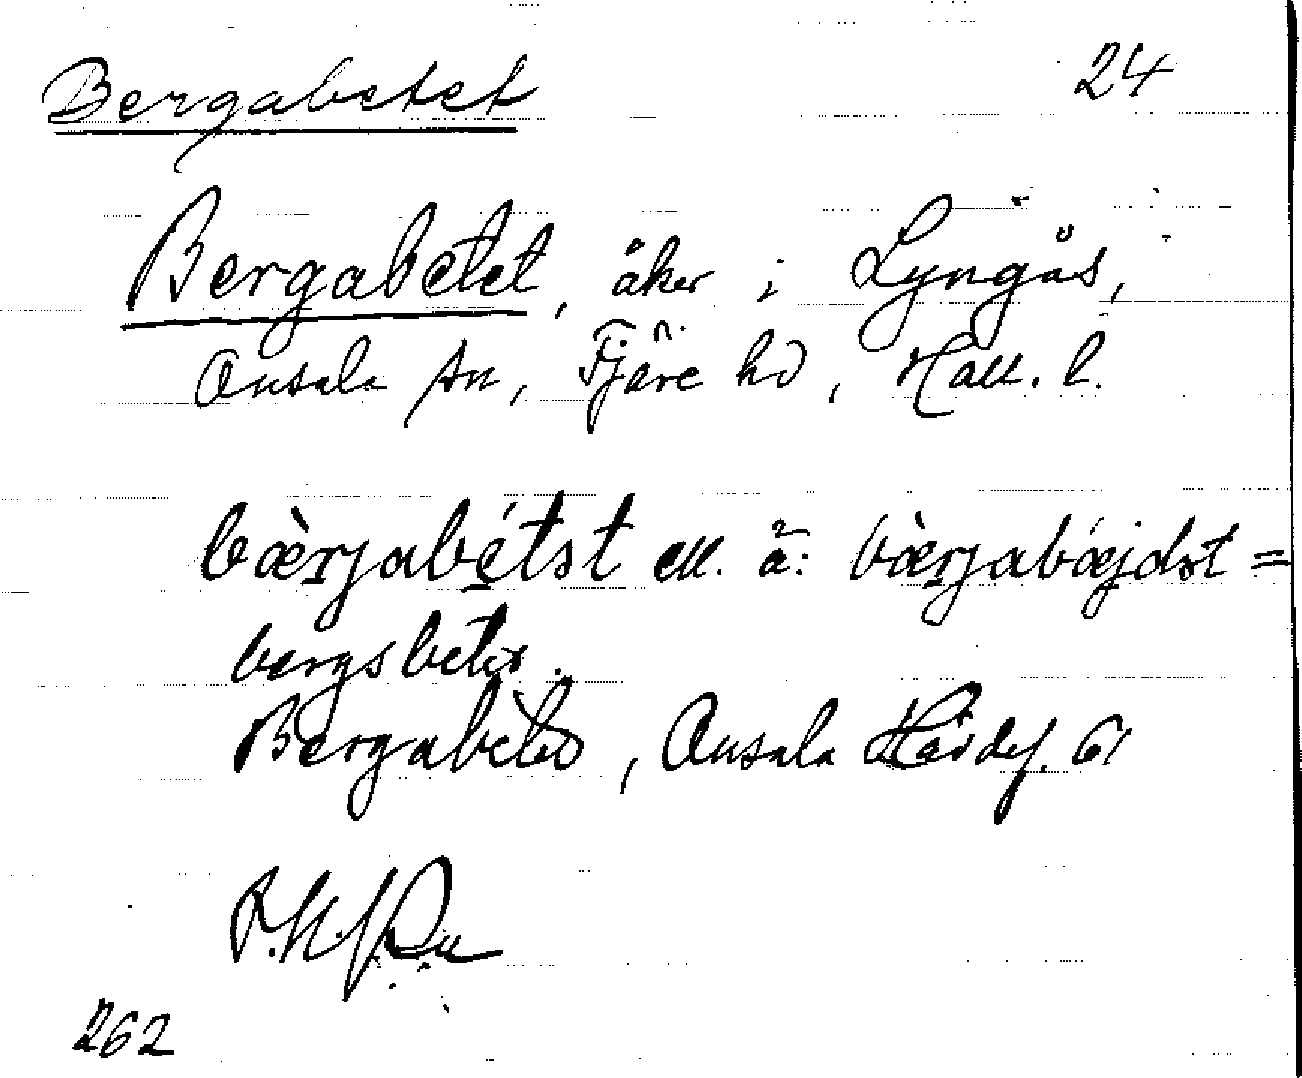 Bergabetet 24
Bergabetet, åker i Lyngås,
Onsala sn, Fjäre hd, Hall. l.
bæ̀rjabétət ell. å: bæ̀rjabǽjdət =
bergsbetet.
Bergabetet, Onsala 61
262